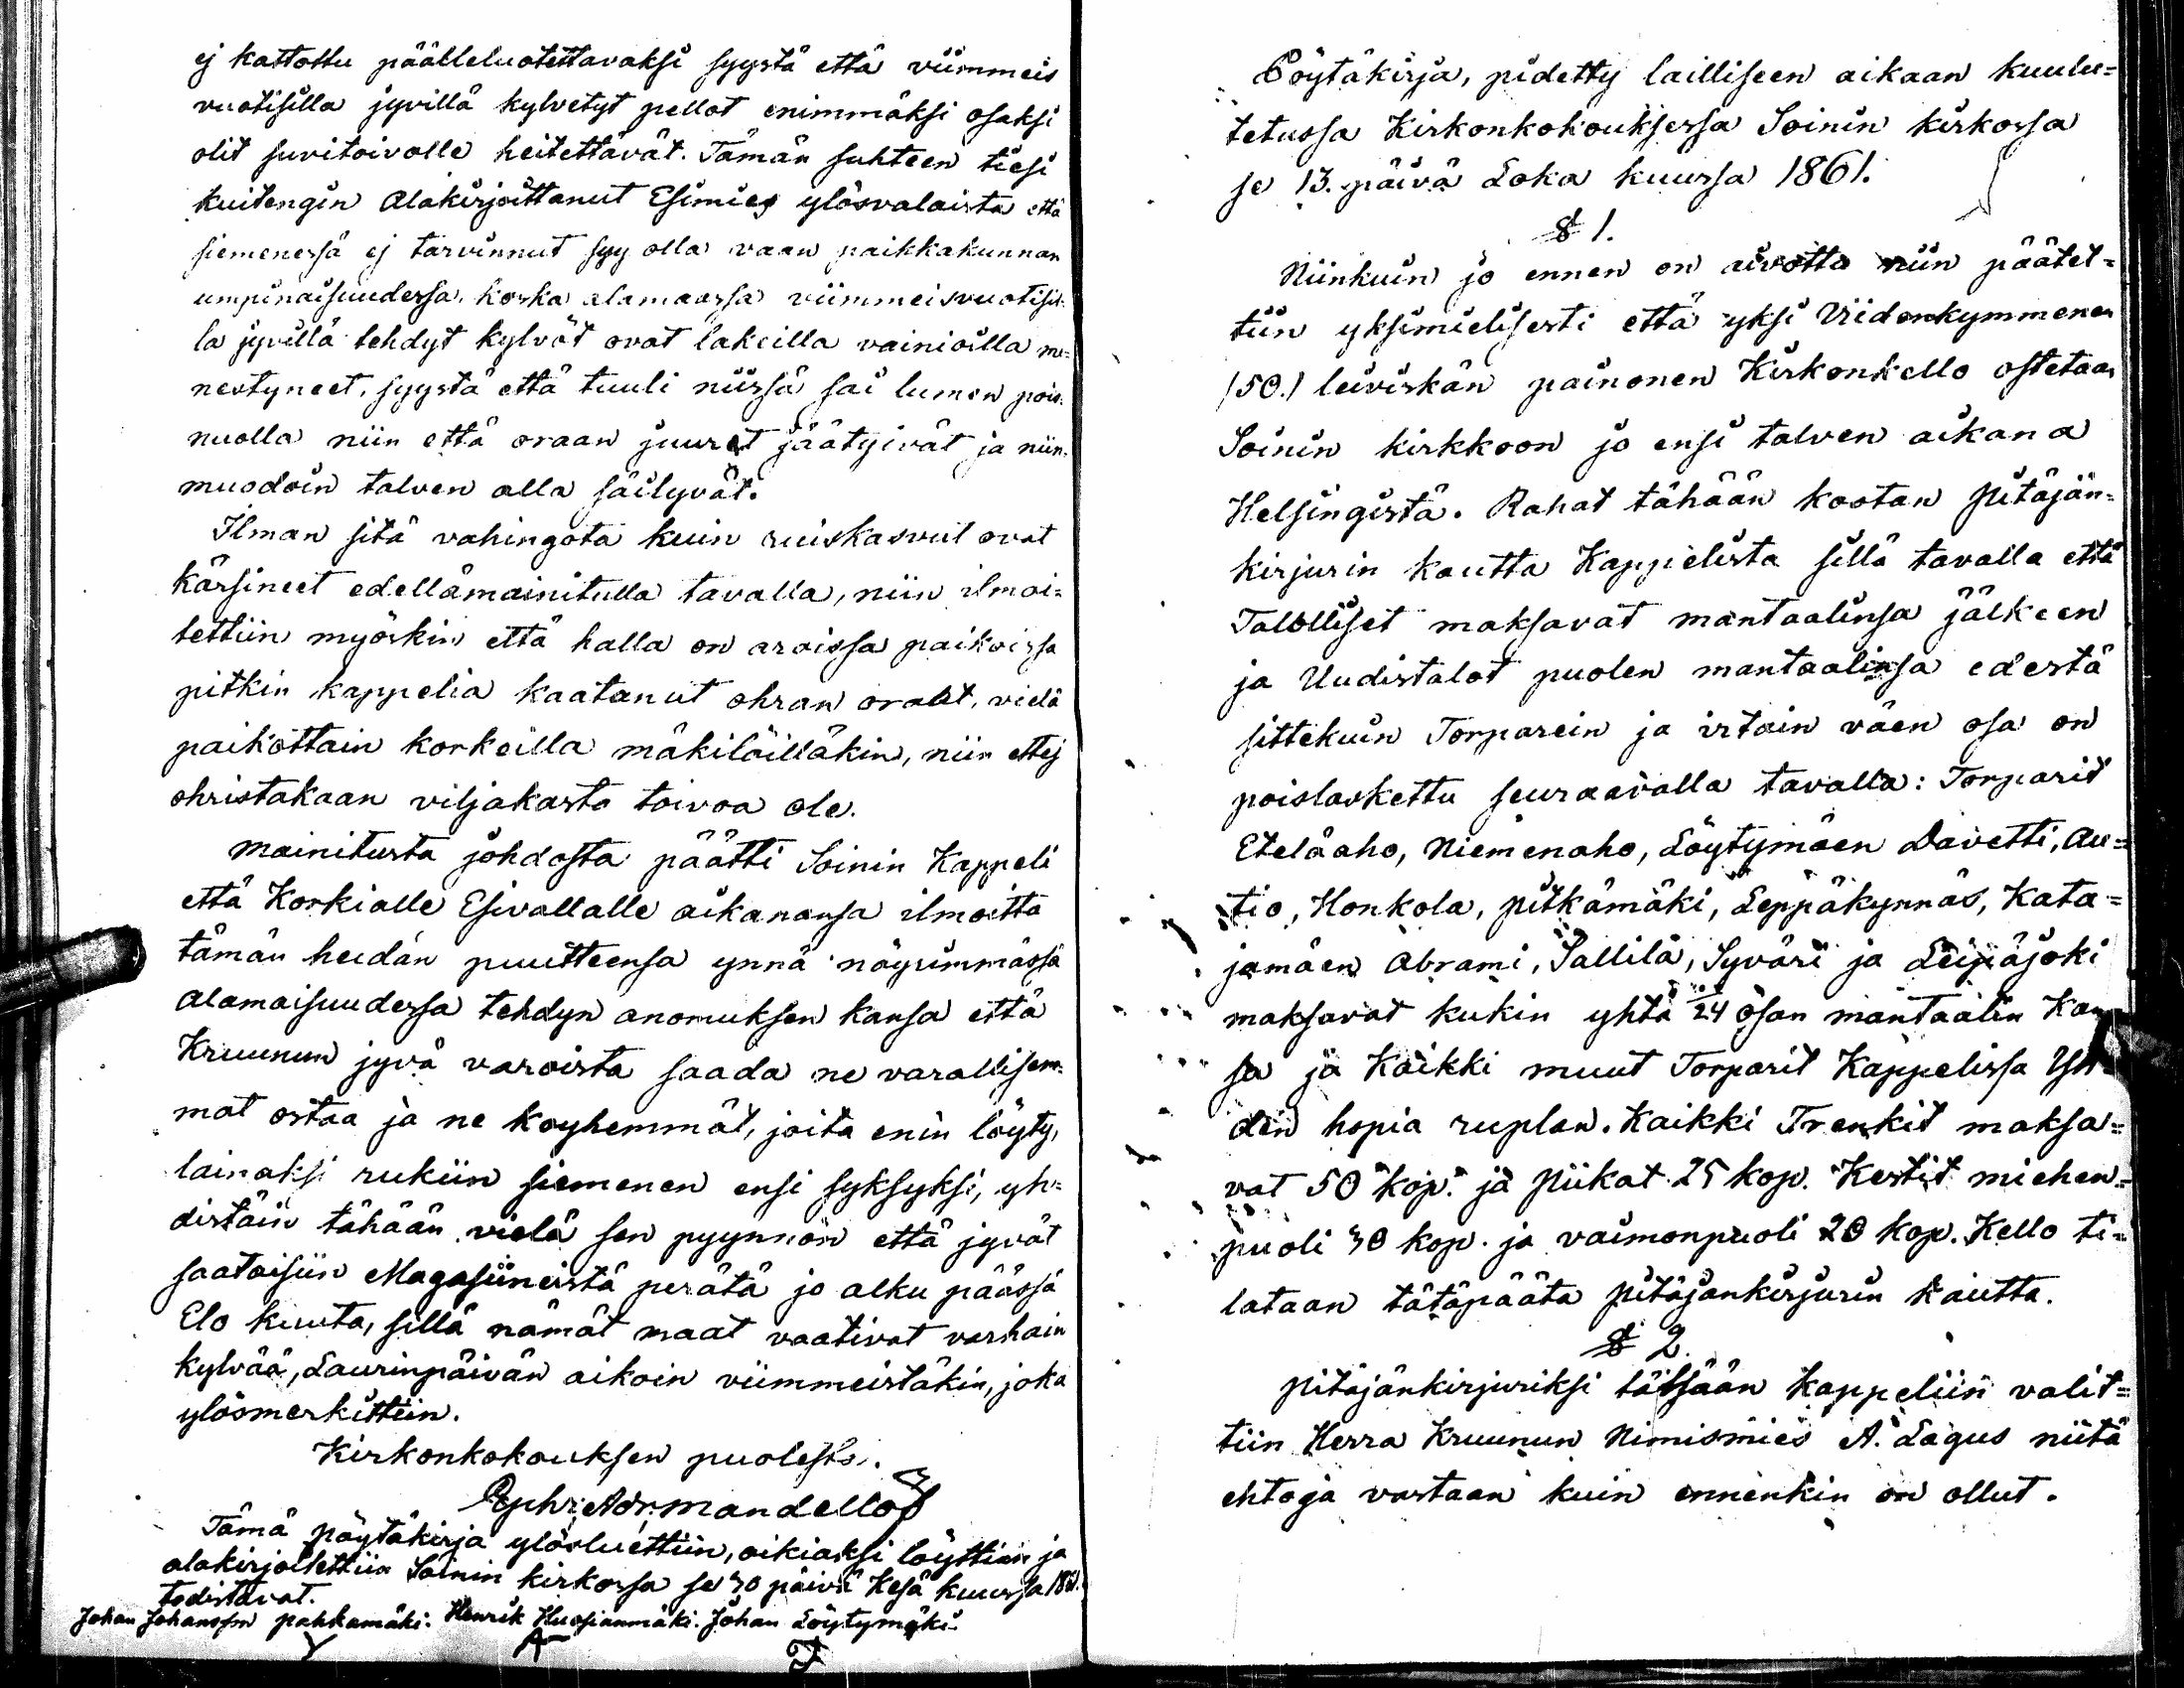 ej kattottu päälleluotettavaksi syystä että viimmeis
vuotisilla jyvillä kylvetyt pellot enimmäksi osaksi
olit suvitoivolle heitettävät. Tämän suhteen tiesi
kuitengin Alakirjoittanut Esimies ylösvalaista että
siemenessä ej tarvinnut syy olla vaan paikkakunnan
umpinaisuudessa, koska alamaassa viimmeisvuotisil-
la jyvillä tehdyt kylvöt ovat lakeilla vainioilla me-
nestyneet, syystä että tuuli niissä sai lumen pois-
nuolla niin että oraan juuret jäätyivät ja niin-
muodoin talven alla säilyvät.
Ilman sitä vahingota kuin ruiskasvut ovat
kärsineet edellämainitulla tavalla, niin ilmoi=
tettiin myöskin että halla on aroissa paikoissa
pitkin kappelia kaatanut ohran oraat, vielä
paikottain korkeilla mäkilöilläkin, niin ettej
ohristakaan viljakasta toivoa ole.
Mainitusta johdosta päätti Soinin Kappeli
että Korkialle Esivallalle aikanansa ilmoitta
tämän heidän puutteensa ynnä nöyrimmässä
alamaisuudessa tehdyn anomuksen kansa että
Kruunun jyvä varoista saada ne varallisem-
mat ostaa ja ne köyhemmät, joita enin löyty,
lainaksi rukiin siemenen ensi syksyksi, yh=
distäin tähään vielä sen pyynnön että jyvät
saataisiin Magasiineistä perätä jo alku päässä
Elo kuuta, sillä nämät maat vaativat varhain
kylvää, Laurinpäivän aikoin viimmeistäkin, joka
ylösmerkittiin.
Kirkonkokouksen puolesta.
Ephr: Adr: Mandellöf
Tämä pöytäkirja ylösluettiin, oikiaksi löyttiin ja
alakirjoitettiin Soinin kirkossa se 30 päivä Kesä kuussa 1861.
todistavat.
Johan Johansson pahkamäki. Henrik Huopianmäki. Johan Löytymäki.
Pöytäkirja, pidetty lailliseen aikaan kuulu=
tetussa Kirkonkokouksessa Soinin kirkossa
se 13. päivä Loka kuussa 1861.
§ 1.
Niinkuin jo ennen on aivottu niin päätet=
tiin yksimielisesti että yksi Viidenkymmenen
(50.) leiviskän painonen Kirkonkello ostetaan
Soinin kirkkoon jo ensi talven aikana
Helsingistä. Rahat tähään kootan Pitäjän=
kirjurin kautta Kappelista sillä tavalla että
Talolliset maksavat mantaalinsa jälkeen
ja Uudistalot puolen mantaalinsa edestä
sittekuin Torparein ja irtain väen osa on
poislaskettu seuraavalla tavalla: Torparit
Eteläaho, Niemenaho, Löytymäen Davetti, Au=
tio, Honkola, pitkämäki, Leppäkynnäs, Kata=
jamäen Abrami, Sallila, Syväri ja Leipäjoki
maksavat kukin yhtä 24 osan mantaalin Kan
sa ja Kaikki muut Torparit Kappelissa Yh-
den hopia ruplan. Kaikki Trenkit maksa=
vat 50 kop. ja Piikat 25 kop. Kestit miehen=
puoli 30 kop. ja vaimonpuoli 20 kop. Kello ti=
lataan tätäpäätä pitäjänkirjurin kautta.
§ 2.
Pitäjänkirjuriksi tähään Kappeliin valit=
tiin Herra Kruunun Nimismies A. Lagus niitä
ehtoja vastaan kuin ennenkin on ollut.